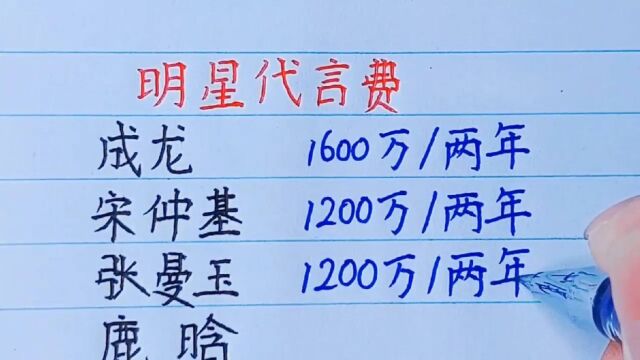 明星代言费
成龙 1600万/两年
宋仲基 1200万/两年
张曼玉 1200万/两年
鹿晗